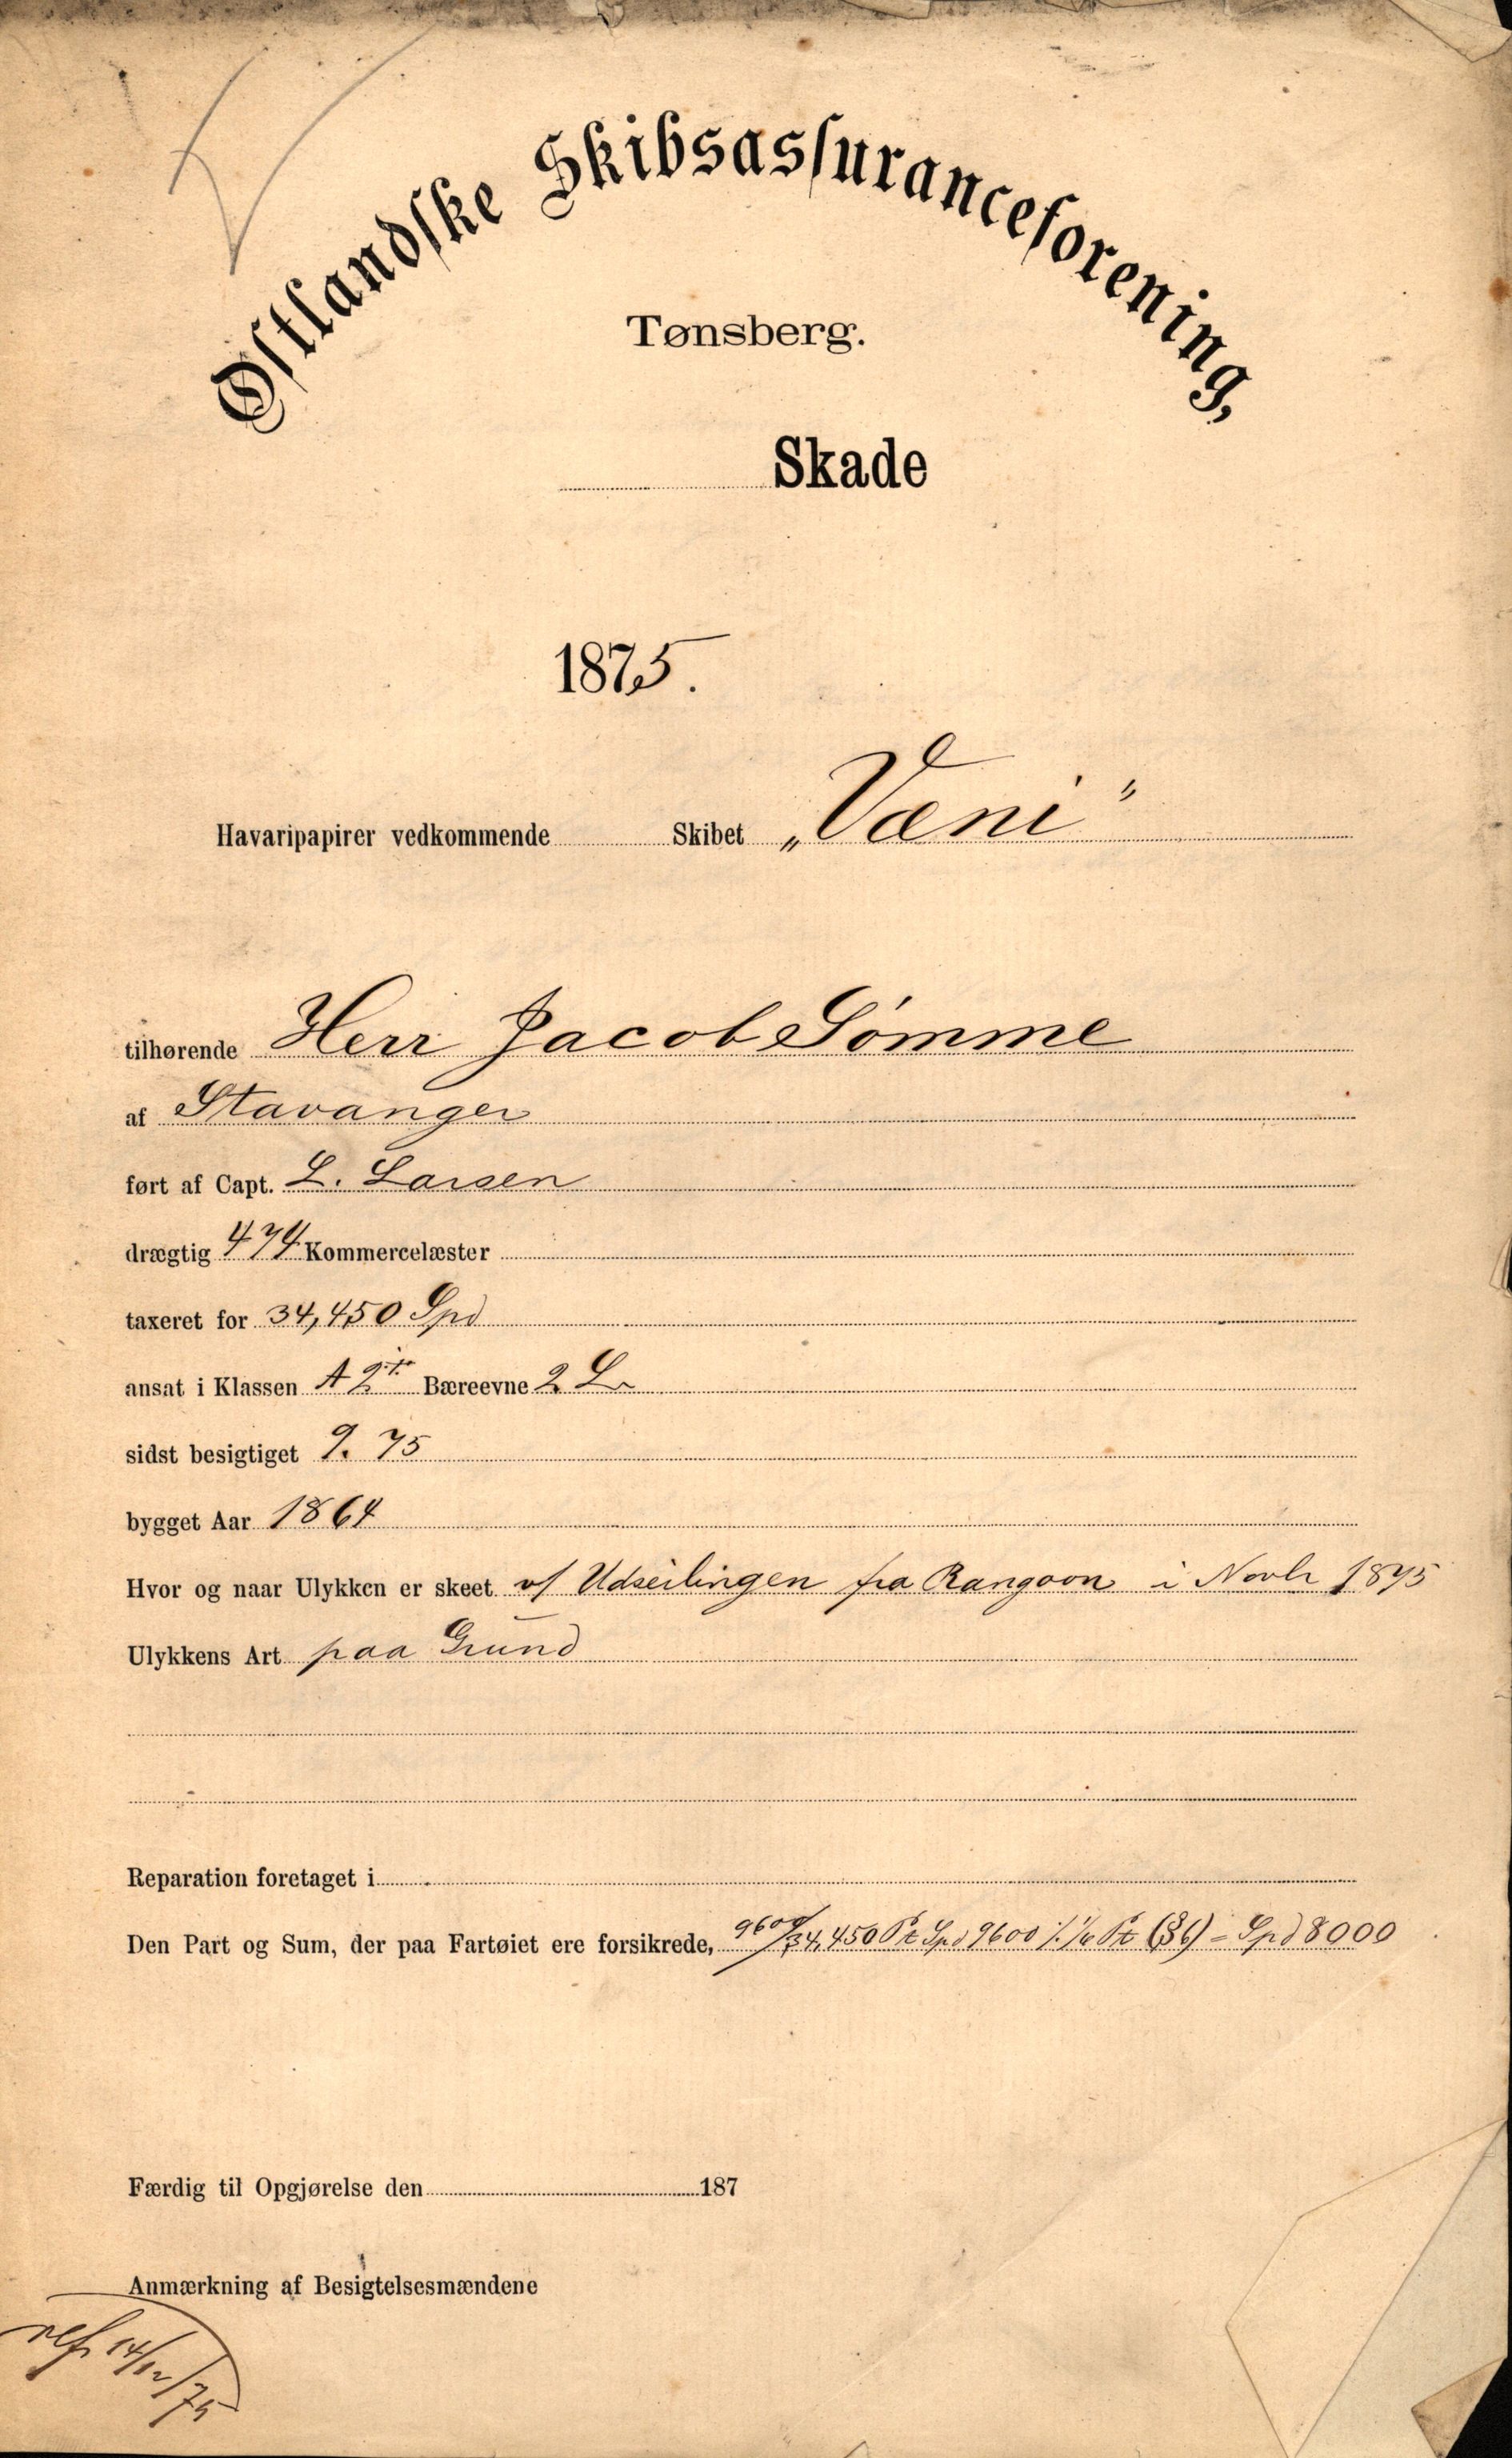 Østlandske Skibsassuranceforening,
Tønsberg.
Skade
1875.
Havaripapirer vedkommende Skibet „Væni"
tilhørende Herr Jacob Sømme
af Stavanger
ført af Capt. L. Larsen
drægtig 474 Kommercelæster
taxeret for 34,450 Spd
ansat i Klassen A 2 Bæreevne 2 L
sidst besigtiget 9. 75
bygget Aar 1864
Hvor og naar Ulykken er skeet v/ Udseilingen fra Rangoon i Novbr 1875
Ulykkens Art paa Grund
Reparation foretaget i
Den Part og Sum, der paa Fartøiet ere forsikrede, 9600/34,450 Pt Spd 9600 ⁒ 1/6 Pt (§6) = Spd 8000
Færdig til Opgjørelse den 187
Anmærkning af Besigtelsesmændene
14/12/75